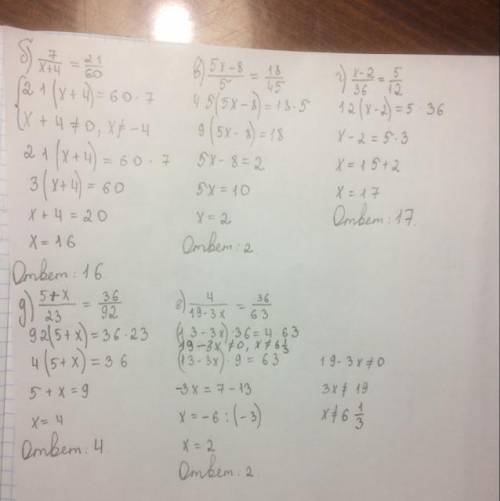 б) 7/(x+4) = 21/60
{ 21(x+4)=60·7
x+4≠0, x≠-4
21(x+4)=60·7
3(x+4)=60
x+4=20
x=16
Ответ: 16.
в) (5x-8)/5 = 18/45
45(5x-8)=18·5
9(5x-8)=18
5x-8=2
5x=10
x=2
Ответ: 2
г) (x-2)/36 = 5/12
12(x-2)=5·36
x-2=5·3
x=15+2
x=17
Ответ: 17.
д) (5+x)/23 = 36/92
92(5+x)=36·23
4(5+x)=36
5+x=9
x=4
Ответ: 4.
е) 4/(19-3x) = 36/63
(13-3x)·36=4 63
19-3x≠0, x≠6 1/3
(13-3x)·9=63
-3x=7-13
x=-6:(-3)
x=2
Ответ: 2.
19-3x≠0
3x≠19
x≠6 1/3